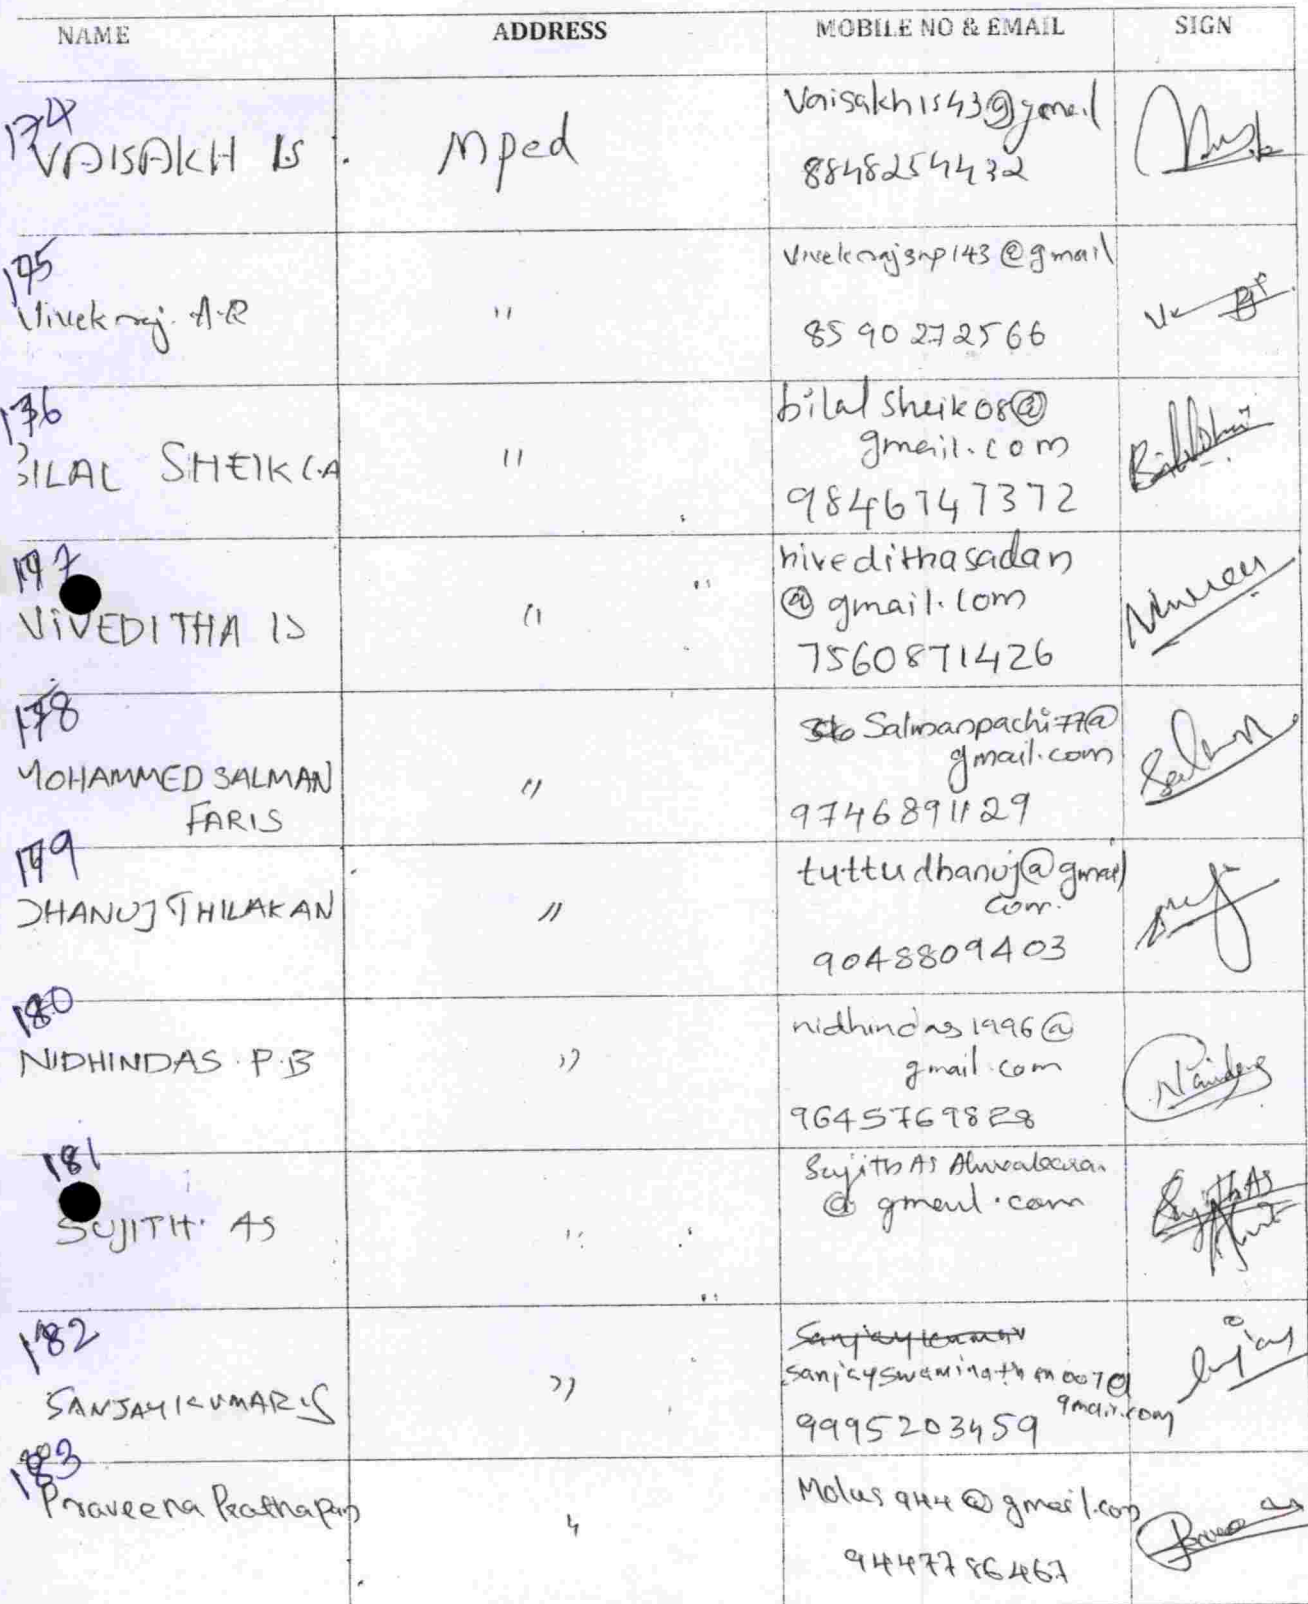 NAME ADDRESS MOBILE NO & EMAIL SIGN
174
VAISAKH I.S. Mped Vaisakh1543@gmail
8848254432
175
Vivekraj. A.R " Vivekrajsnp143@gmail
8590272566
176
BILAL SHEIK C.A " bilalsheik08@
gmail.com
9846747372
177
NIVEDITHA IS " nivedithasadan
@gmail.com
7560871426
178
MOHAMMED SALMAN
FARIS " Salmanpachi77@
gmail.com
9746891129
Salman
179
DHANUJ THILAKAN " tuttudhanuj@gmail
com.
9048809403
180
NIDHINDAS. P.B " nidhindas1996@
gmail.com
9645769828
181
SUJITH. AS " Sujith As
@gmail.com
Sujith As
182
SANJAYKUMAR.S " Sanjaykumar
sanjayswaminathan007@
gmail.com
9995203459
183
Praveena Prathapan " Molus944@gmail.com
9447786467